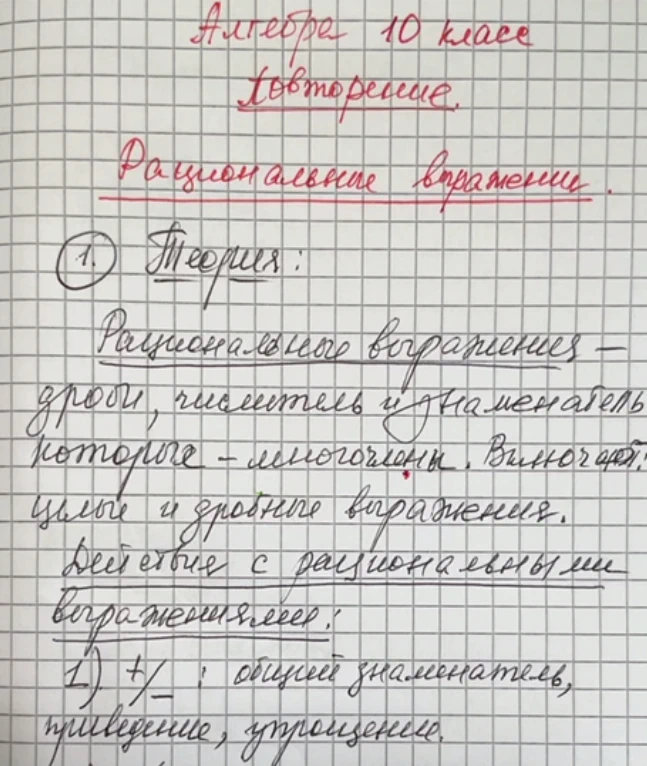 Алгебра 10 класс
Повторение.
Рациональные выражения.
1. Теория:
Рациональные выражения –
дроби, числитель и знаменатель
которые – многочлены. Включают:
целые и дробные выражения.
Действия с рациональными
выражениями:
1) +/– : общий знаменатель,
приведение, упрощение.